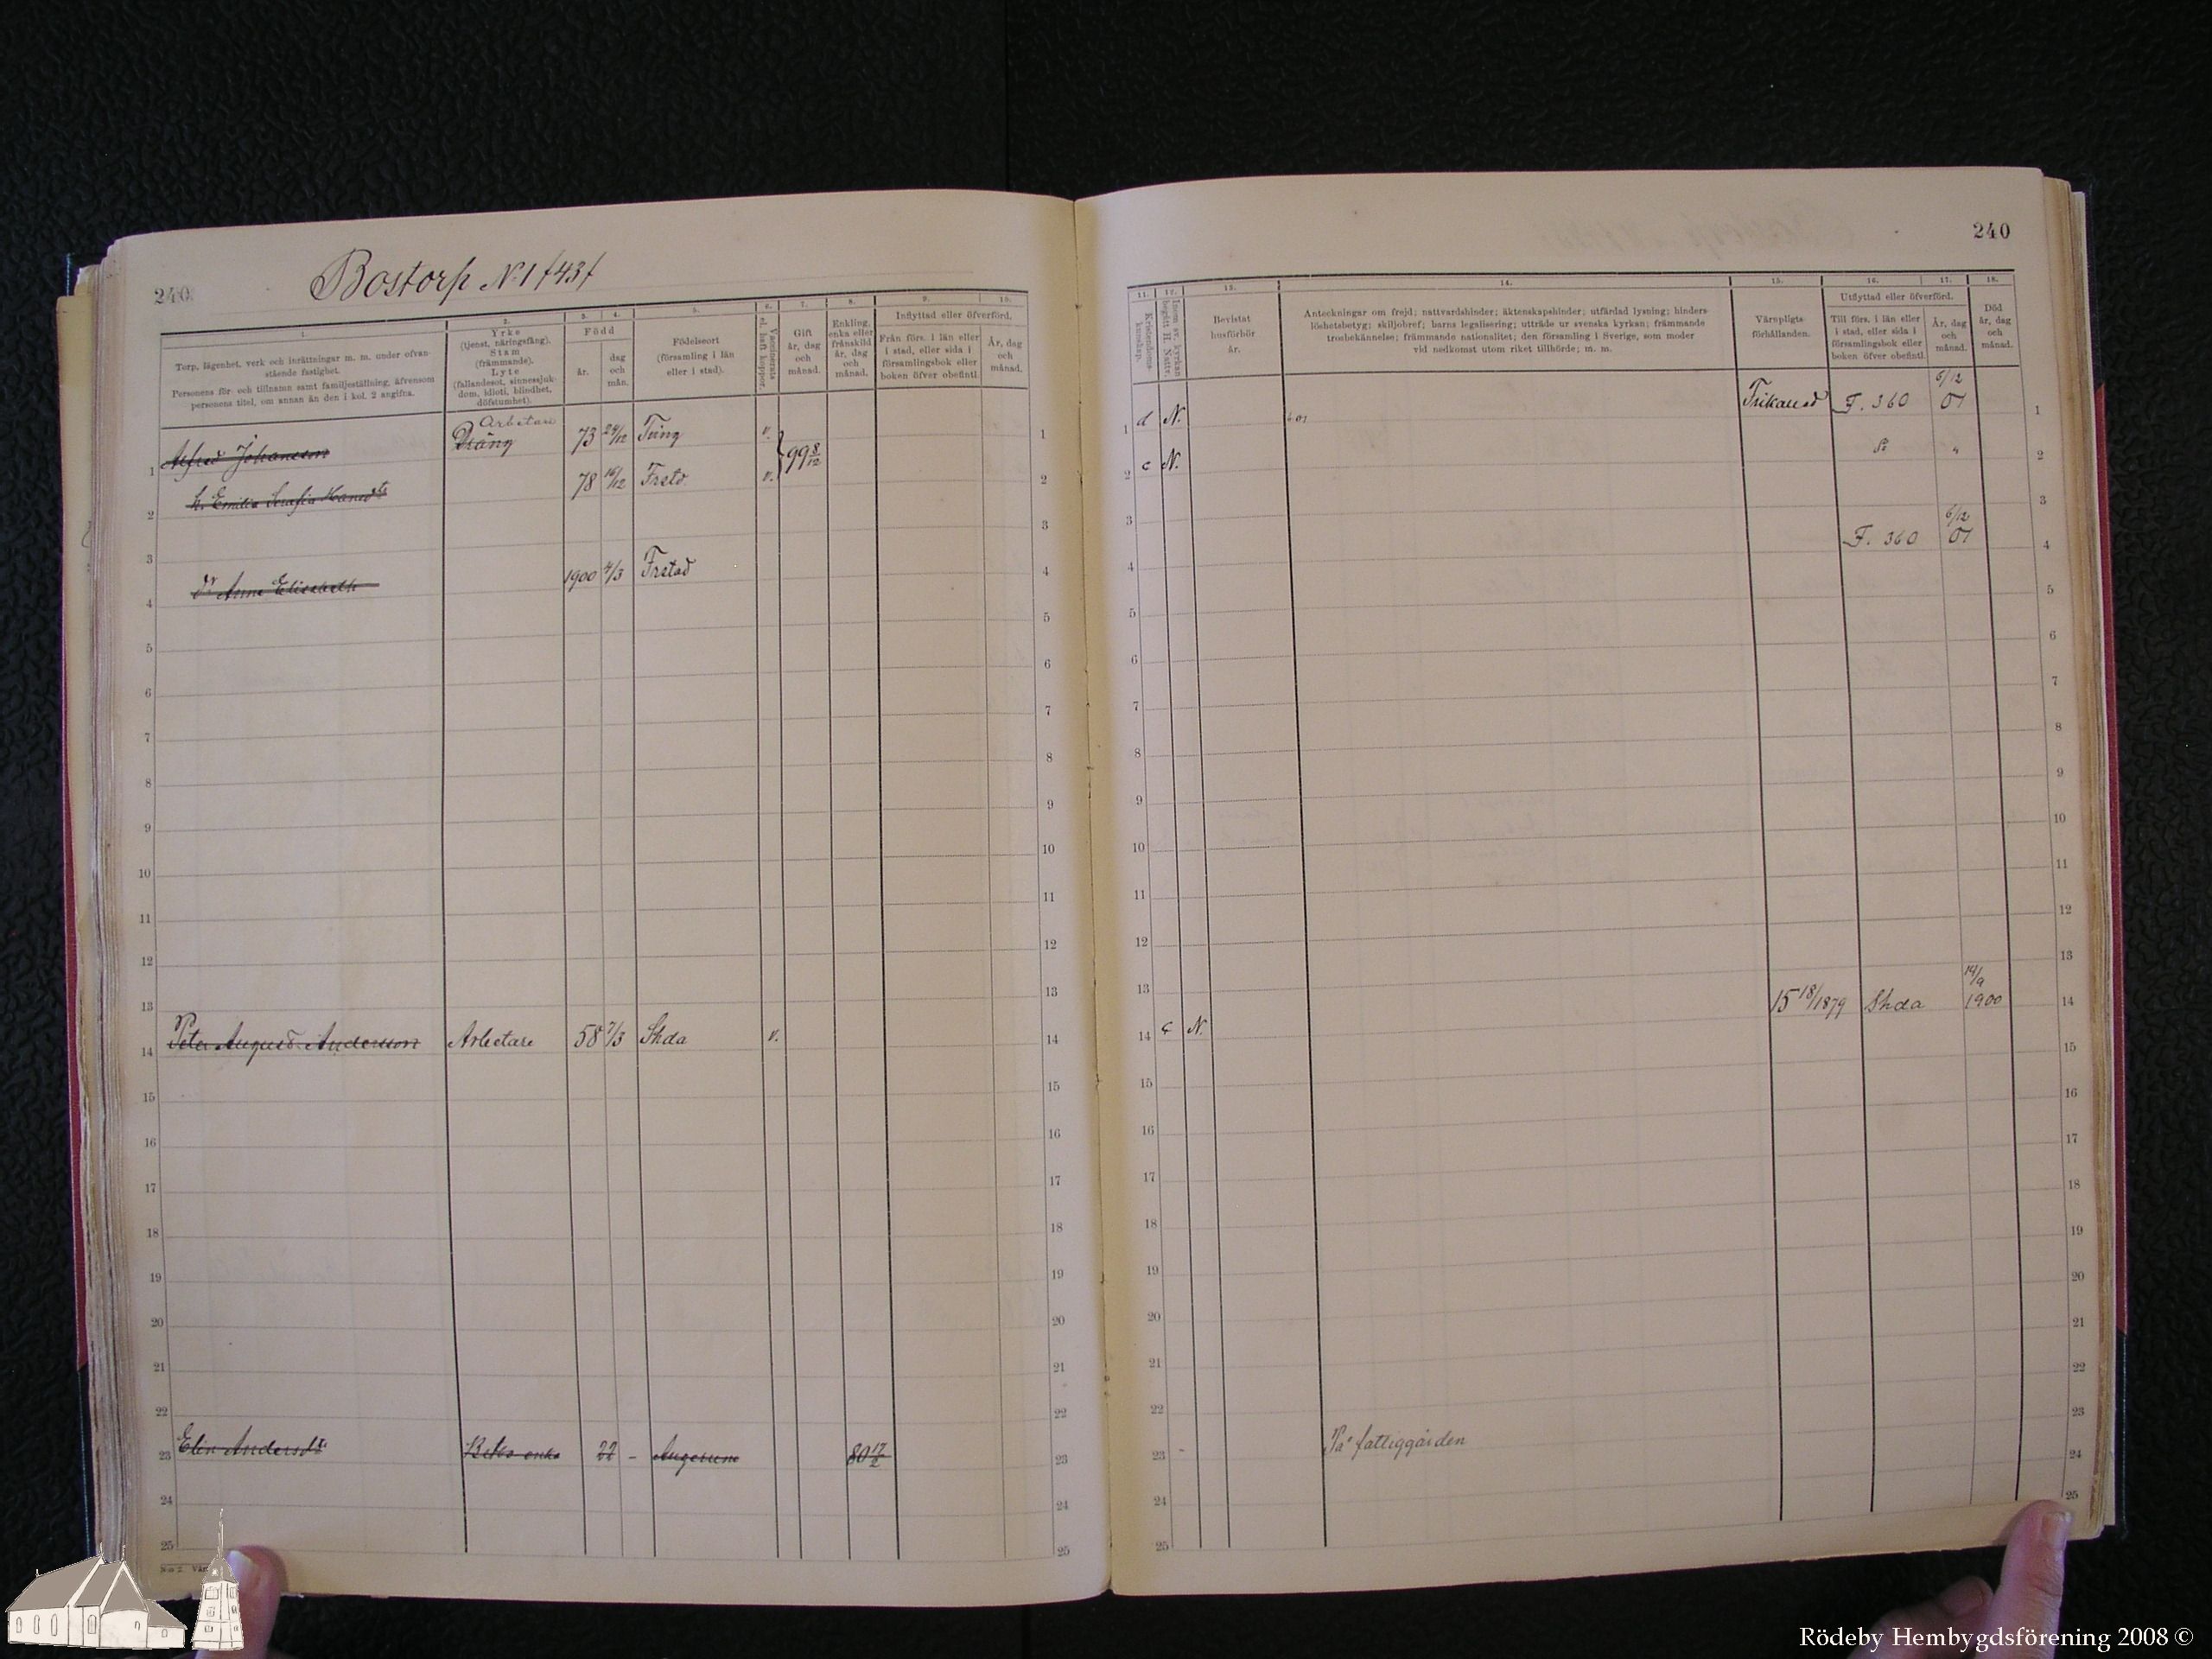 240
Bostorp N:1 /43/
1. 2. 3. 4. 5. 6. 7. 8. 9. 10.
Torp, lägenhet, verk och inrättningar m. m. under ofvan-
stående fastighet.
Personens för- och tillnamn samt familjeställning, äfvensom
personens titel, om annan än den i kol. 2 angifna.
Yrke
(tjenst, näringsfång).
Stam
(främmande).
Lyte
(fallandesot, sinnessjuk-
dom, idioti, blindhet,
döfstumhet).
Född
år.
dag
och
mån.
Födelseort
(församling i län
eller i stad).
Vaccinerats
el. haft koppor.
Gift
år, dag
och
månad.
Enkling,
enka eller
frånskild
år, dag
och
månad.
Inflyttad eller öfverförd.
Från förs. i län eller
i stad, eller sida i
församlingsbok eller
boken öfver obefintl.
År, dag
och
månad.
Arbetare
1 Alfred Johansson Dräng 73 24/12 Tving v. 99 8/12 1
2 h. Emilia Serafia Hansdtr 78 16/12 Frstd v. 2
3 3
4 dr Anna Elisabeth 1900 4/3 Frstad 4
5 5
6 6
7 7
8 8
9 9
10 10
11 11
12 12
13 13
14 Peter August Andersson Arbetare 58 7/3 Shda v. 14
15 15
16 16
17 17
18 18
19 19
20 20
21 21
22 22
23 Elin Andersdtr enka 22 - Augerum 80 17/2 23
24 24
25 25
240
11. 12. 13. 14. 15. 16. 17. 18.
Kristendoms-
kunskap.
Inom sv. kyrkan
begått H. Nattv.
Bevistat
husförhör
år.
Anteckningar om frejd; nattvardshinder; äktenskapshinder; utfärdad lysning; hinders-
löshetsbetyg; skiljobref; barns legalisering; utträde ur svenska kyrkan; främmande
trosbekännelse; främmande nationalitet; den församling i Sverige, som moder
vid nedkomst utom riket tillhörde; m. m.
Värnpligts-
förhållanden.
Utflyttad eller öfverförd.
Till förs. i län eller
i stad, eller sida i
församlingsbok eller
boken öfver obefintl.
År, dag
och
månad.
Död
år, dag
och
månad.
1 d N. Frikänd F. 360 6/12 01 1
2 c N. do " 2
3 3
4 F. 360 6/12 01 4
5 5
6 6
7 7
8 8
9 9
10 10
11 11
12 12
13 13
14 c N. 15 18/1879 Shda 14/9 1900 14
15 15
16 16
17 17
18 18
19 19
20 20
21 21
22 22
23 - På fattiggården 23
24 24
25 25
Rödeby Hembygdsförening 2008 ©